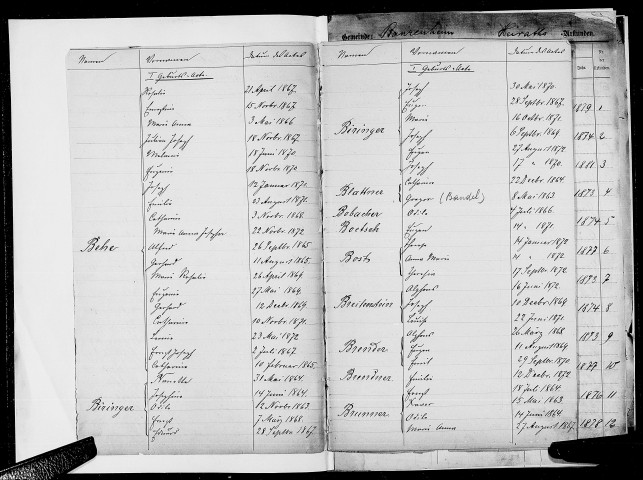 Namen Vornamen Datum des Actes
I Geburts-Acte.
Rosalie 21 April 1867.
Ernestine 15 Novbr 1867.
Maria Anna 3 Mai 1866
Julius Joseph 18 Novbr 1867.
Melanie 18 Juni 1870.
Eugenie 18 Novbr 1870.
Joseph 12 Januar 1870.
Emilie 23 August 1870.
Catharina 3 Novbr 1868.
Maria Anna Josephine 22 Novbr 1872
Behe Alfred 26 Septbr 1865
Gerhard 11 August 1865.
Maria Rosalie 26 April 1869
Eugenie 27 Mai 1869.
Gerhard 12 Decbr 1869
Catharina 10 Novbr 1871.
23 Mai 1872
Ernst Joseph 2 Juli 1867.
Catharina 10 Februar 1865.
31 Mai 1864.
Josephine 14 Juni 1864.
Biringer Odile 12 Novbr 1863.
Ernst 7 März 1868.
Eduard 28 Septbr 1867.
Gemeinde: Urkunden.
Namen Vornamen Datum des Actes
Jahr Nr der Urkunden
I Geburts-Acte.
Joseph 30 Mai 1870.
Eugen 28 Septbr 1867. 1879 1
Marie 16 Octbr. 1871.
Biringer Joseph 6 Septbr 1869 1874 2
Eugen 27 August 1872
Joseph 17 " 1870. 1881 3
Catharina 22 Decbr 1864.
Blattner Gregor (Brendel) 8 Mai 1863 1873 4
Bobacher Odile 4 Juli 1866
Boetsch Eugen 14 " 1871 1874 5
14 Januar 1872
Bosts Anna Maria " 1872 1877 6
Theresia 17 Septbr 1872
Alphons 16 Juni 1872. 1873 7
Breitenstein Joseph 10 Decbr 1869
Louise 22 Juni 1871. 1874 8
Alphons 26 März 1868
Brender Eugen 11 August 1869 1873 9
Emil 29 Septbr 1870.
Brendner Emilie 12 Decbr 1872 1877 10
Ernst 18 Juli 1864
Xavier 15 Mai 1863 1870 11
Brunner Odile 14 Juni 1864
Maria Anna 27 August 1867 1878 12